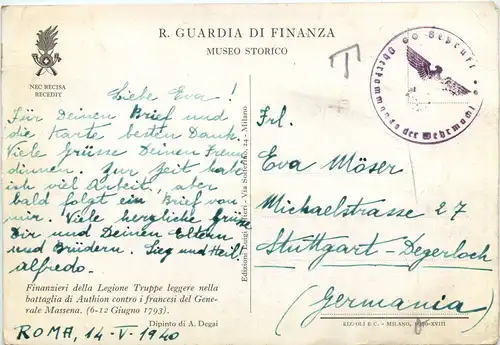 R. GUARDIA DI FINANZA
MUSEO STORICO
NEC RECISA
RECEDIT
T
Geprüft
Oberkommando der Wehrmacht
Liebe Eva!
Für Deinen Brief und
die Karte besten Dank.
Viele Grüsse Deinen Freun-
dinnen. Zur Zeit habe
ich viel Arbeit, aber
bald folgt ein Brief von
mir. Viele herzliche Grüsse
Dir und Deinen Eltern
und Brüdern. Sieg und Heil!
Alfredo.
Finanzieri della Legione Truppe leggere nella
battaglia di Authion contro i francesi del Gene-
rale Massena. (6-12 Giugno 1793).
Dipinto di A. Degai
ROMA, 14-V-1940
Edizioni Luigi Alfieri - Via Solferino, 24 - Milano
Frl.
Eva Möser
Michaelstrasse 27
Stuttgart-Degerloch
(Germania)
MILANO,